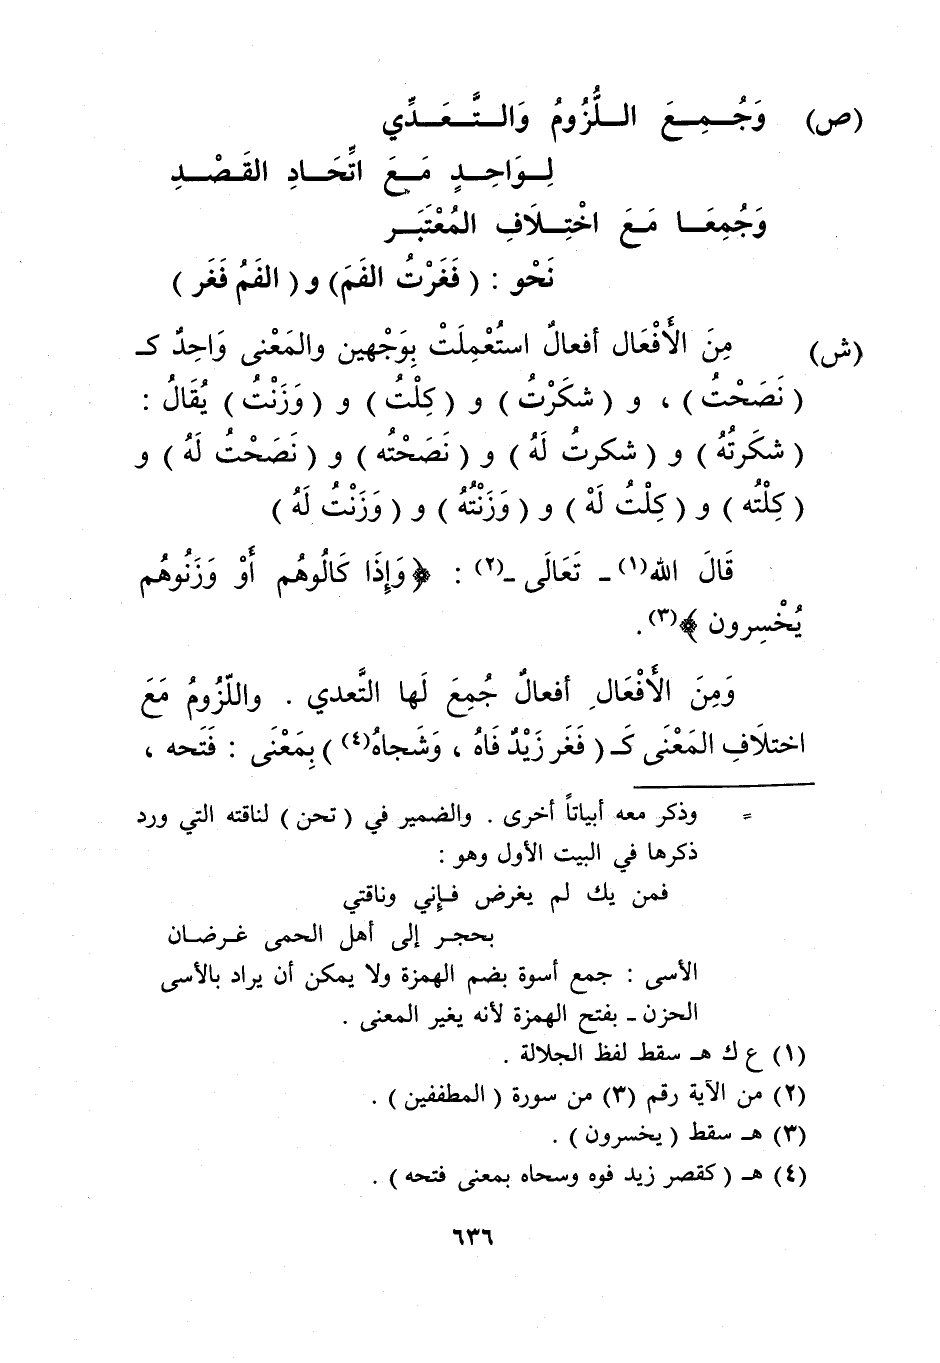 (ص) وَجُمِعَ اللُّزُومُ وَالتَّعَدِّي
لِوَاحِدٍ مَعَ اتِّحَادِ القَصْدِ
وَجُمِعَا مَعَ اخْتِلَافِ المُعْتَبَر
نَحْو : ( فَغَرْتُ الفَمَ) و ( الفَمُ فَغَر )
(ش) مِنَ الأَفْعَال أفعالٌ استُعْمِلَتْ بِوَجْهين والمَعْنى وَاحِدٌ كـ
( نَصَحْتُ ) ، و ( شكَرْتُ ) و ( كِلْتُ ) و ( وَزَنْتُ ) يُقَالُ :
( شكَرتُهُ ) و ( شكرتُ لَهُ ) و ( نَصَحْتُه ) و ( نَصَحْتُ لَهُ ) و
( كِلْتُه ) و ( كِلْتُ لَهْ ) و ( وَزَنْتُهُ ) و ( وَزَنْتُ لَهُ )
قَالَ الله(١) ـ تَعَالَى ـ(٢) : ﴿ وَإِذَا كَالُوهُم أَوْ وَزَنُوهُم
يُخْسِرون ﴾(٣) .
وَمِنَ الأَفْعَالِ أفعالٌ جُمِعَ لَها التَّعدي . واللّزُومُ مَعَ
اختلَافِ المَعْنى كَـ ( فَغَر زَيْدٌ فَاهُ ، وَشَجاهُ(٤) ) بِمَعْنَى : فَتَحه ،
= وذكر معه أبياتاً أخرى . والضمير في ( تحن ) لناقته التي ورد
ذكرها في البيت الأول وهو :
فمن يك لم يغرض فإني وناقتي
بحجر إلى أهل الحمى غرضان
الأسى : جمع أسوة بضم الهمزة ولا يمكن أن يراد بالأسى
الحزن ـ بفتح الهمزة لأنه يغير المعنى .
(١) ع ك هـ سقط لفظ الجلالة .
(٢) من الآية رقم (٣) من سورة ( المطففين ) .
(٣) هـ سقط ( يخسرون ) .
(٤) هـ ( كقصر زيد فوه وسحاه بمعنى فتحه ) .
٦٣٦